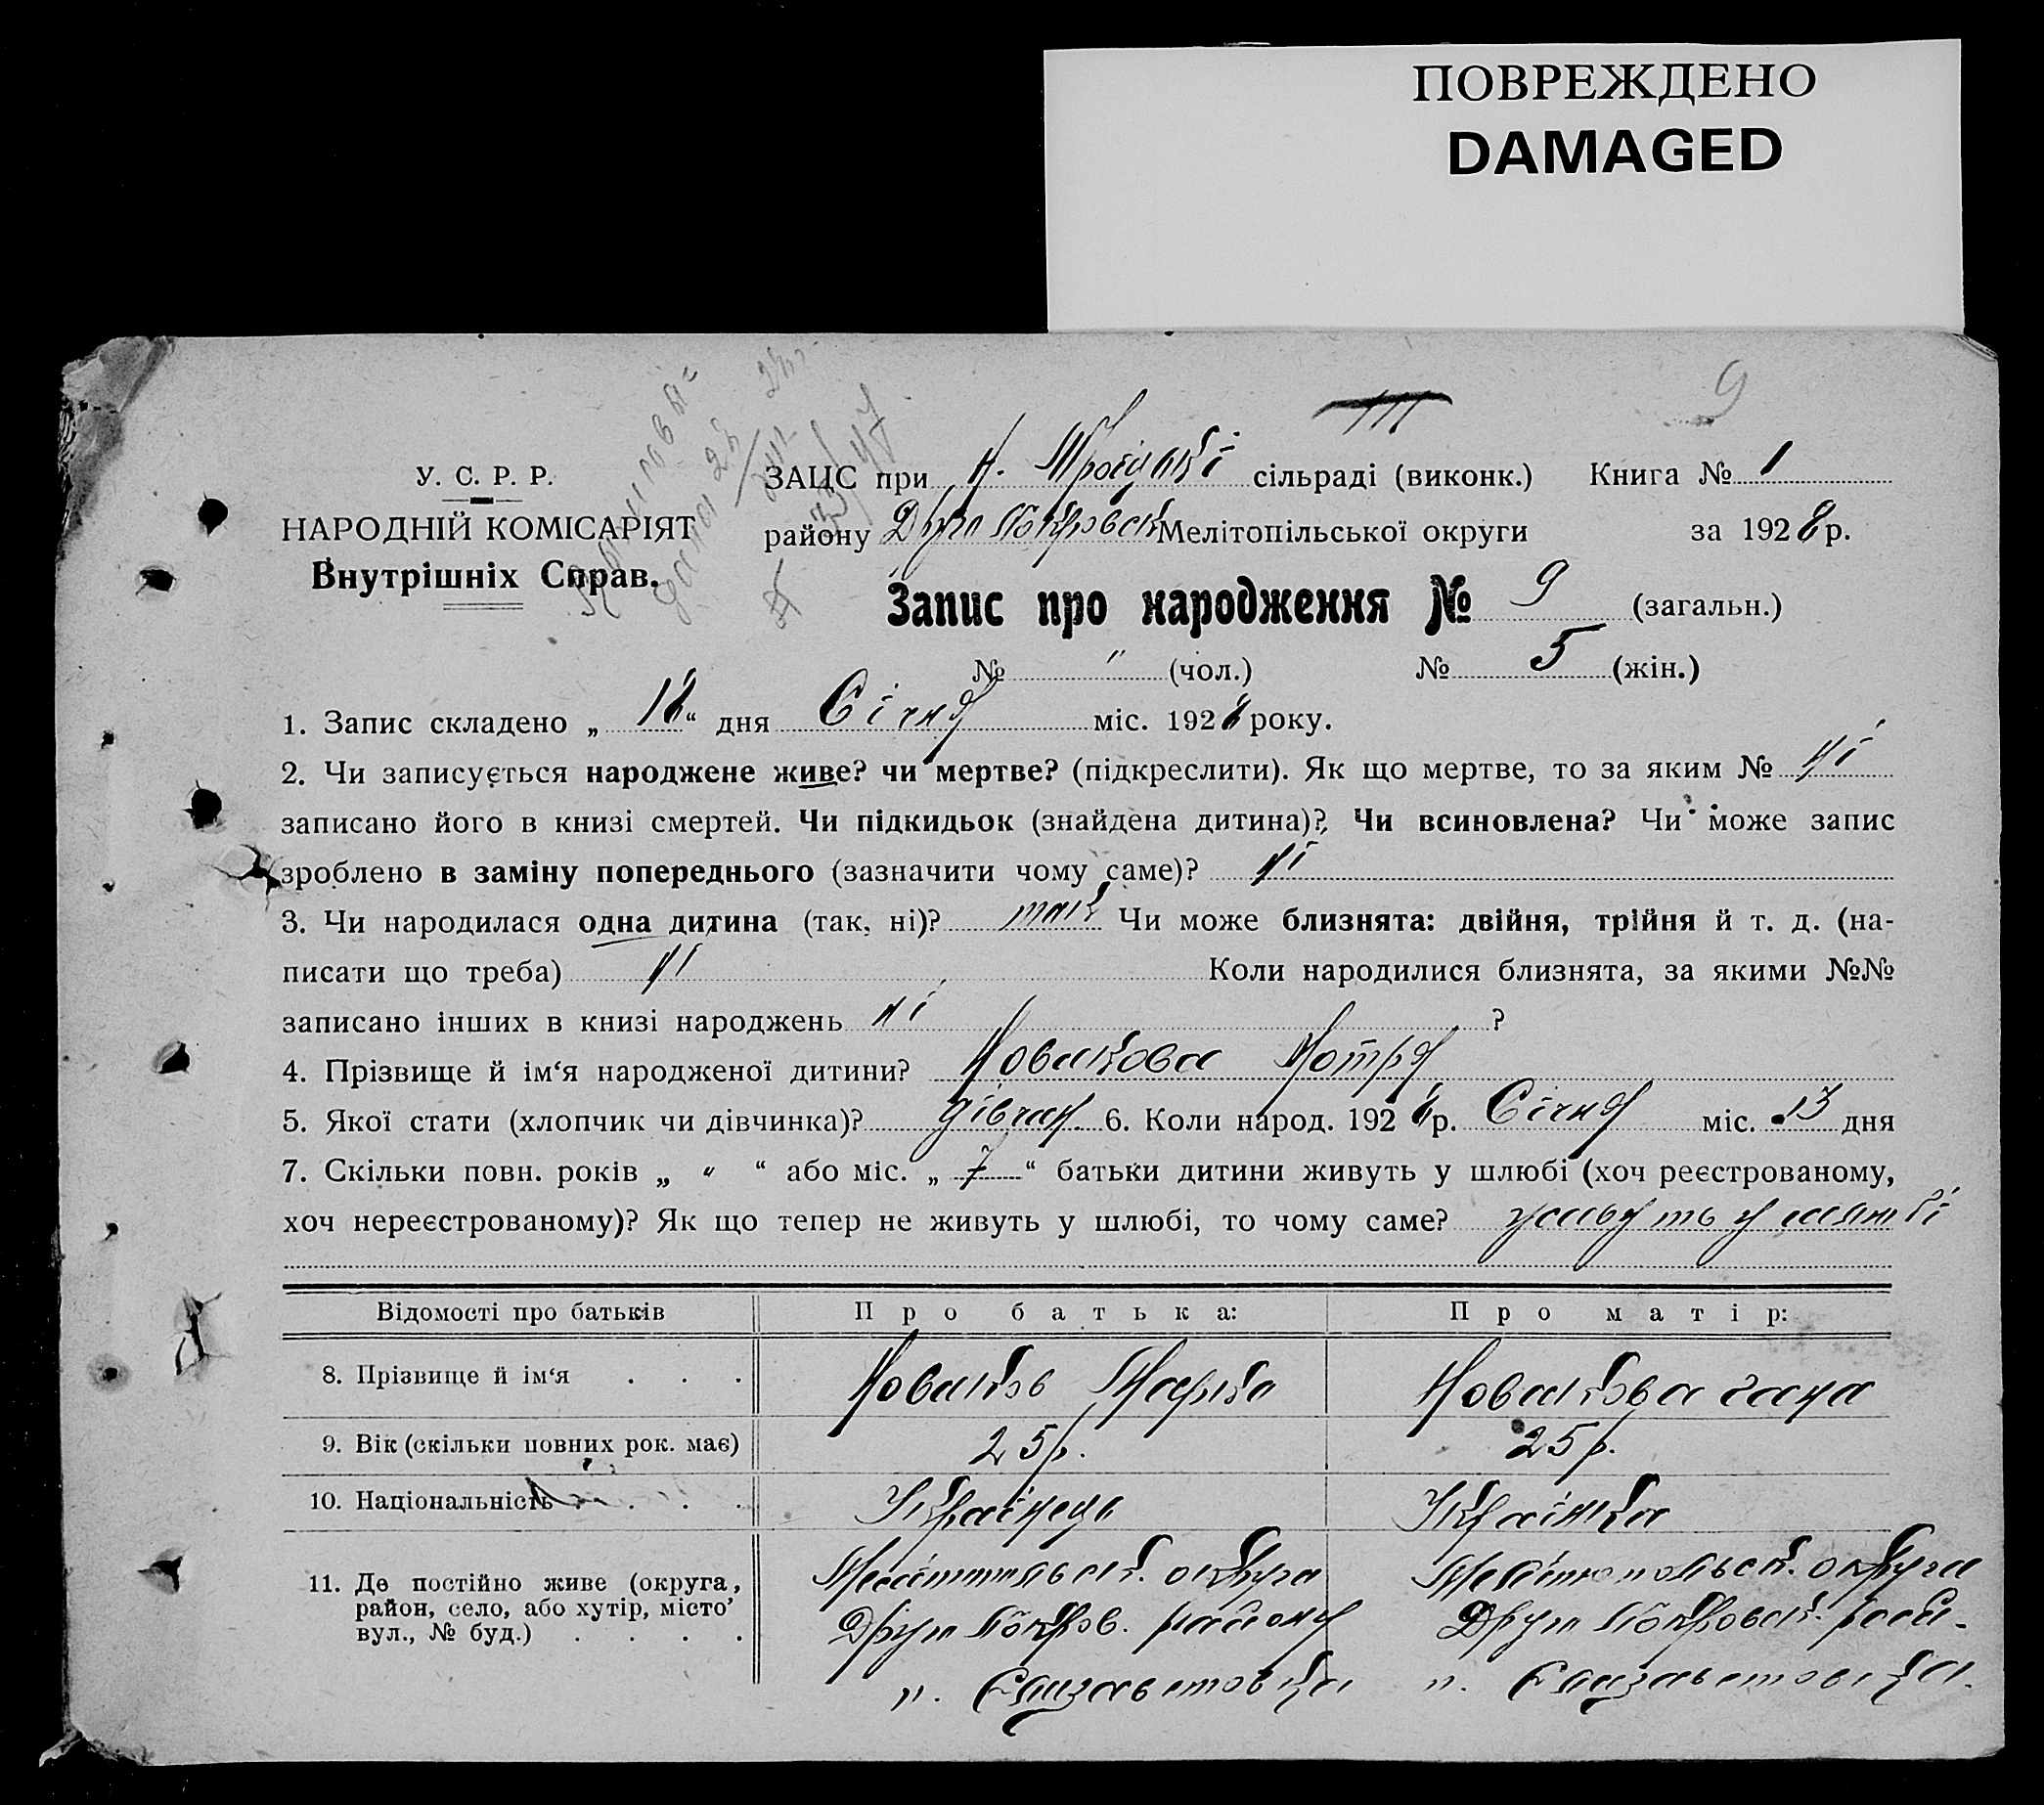 ПОВРЕЖДЕНО
DAMAGED
9
У. С. Р. Р.
НАРОДНІЙ КОМІСАРІЯТ
Внутрішніх Справ.
ЗАЦС при Н. Троїцькі сільраді (виконк.) Книга № 1
району Друго Покровськ Мелітопільської округи за 1928 р.
Запис про народження № 9 (загальн.)
№ " (чол.) № 5 (жін.)
1. Запис складено „ 18 “ дня Січня міс. 1928 року.
2. Чи записується народжене живе? чи мертве? (підкреслити). Як що мертве, то за яким № ні
записано його в книзі смертей. Чи підкидьок (знайдена дитина)? Чи всиновлена? Чи може запис
зроблено в заміну попереднього (зазначити чому саме)? ні
3. Чи народилася одна дитина (так, ні)? так Чи може близнята: двійня, трійня й т. д. (на-
писати що треба) ні Коли народилися близнята, за якими №№
записано інших в книзі народжень ні ?
4. Прізвище й ім‘я народженої дитини? Новакова Мотря
5. Якої стати (хлопчик чи дівчинка)? дівчин. 6. Коли народ. 1928 р. Січня міс. 13 дня
7. Скільки повн. років „ " “ або міс. „ 7 “ батьки дитини живуть у шлюбі (хоч реєстрованому,
хоч нереєстрованому)? Як що тепер не живуть у шлюбі, то чому саме? живуть у шлюбі
Відомості про батьків Про батька: Про матір:
8. Прізвище й ім‘я . . . Новаков Марко Новакова Гана
9. Вік (скільки повних рок. має) 25 р. 25 р.
10. Національність . . . Українець Українка
11. Де постійно живе (округа,
район, село, або хутір, місто
вул., № буд.) . . . .
Мелітопільськ. округа
Друго Покров. району
п. Єлизаветовка
Мелітопольськ. округа
Друго Покровськ. рай-
п. Єлизаветовка.